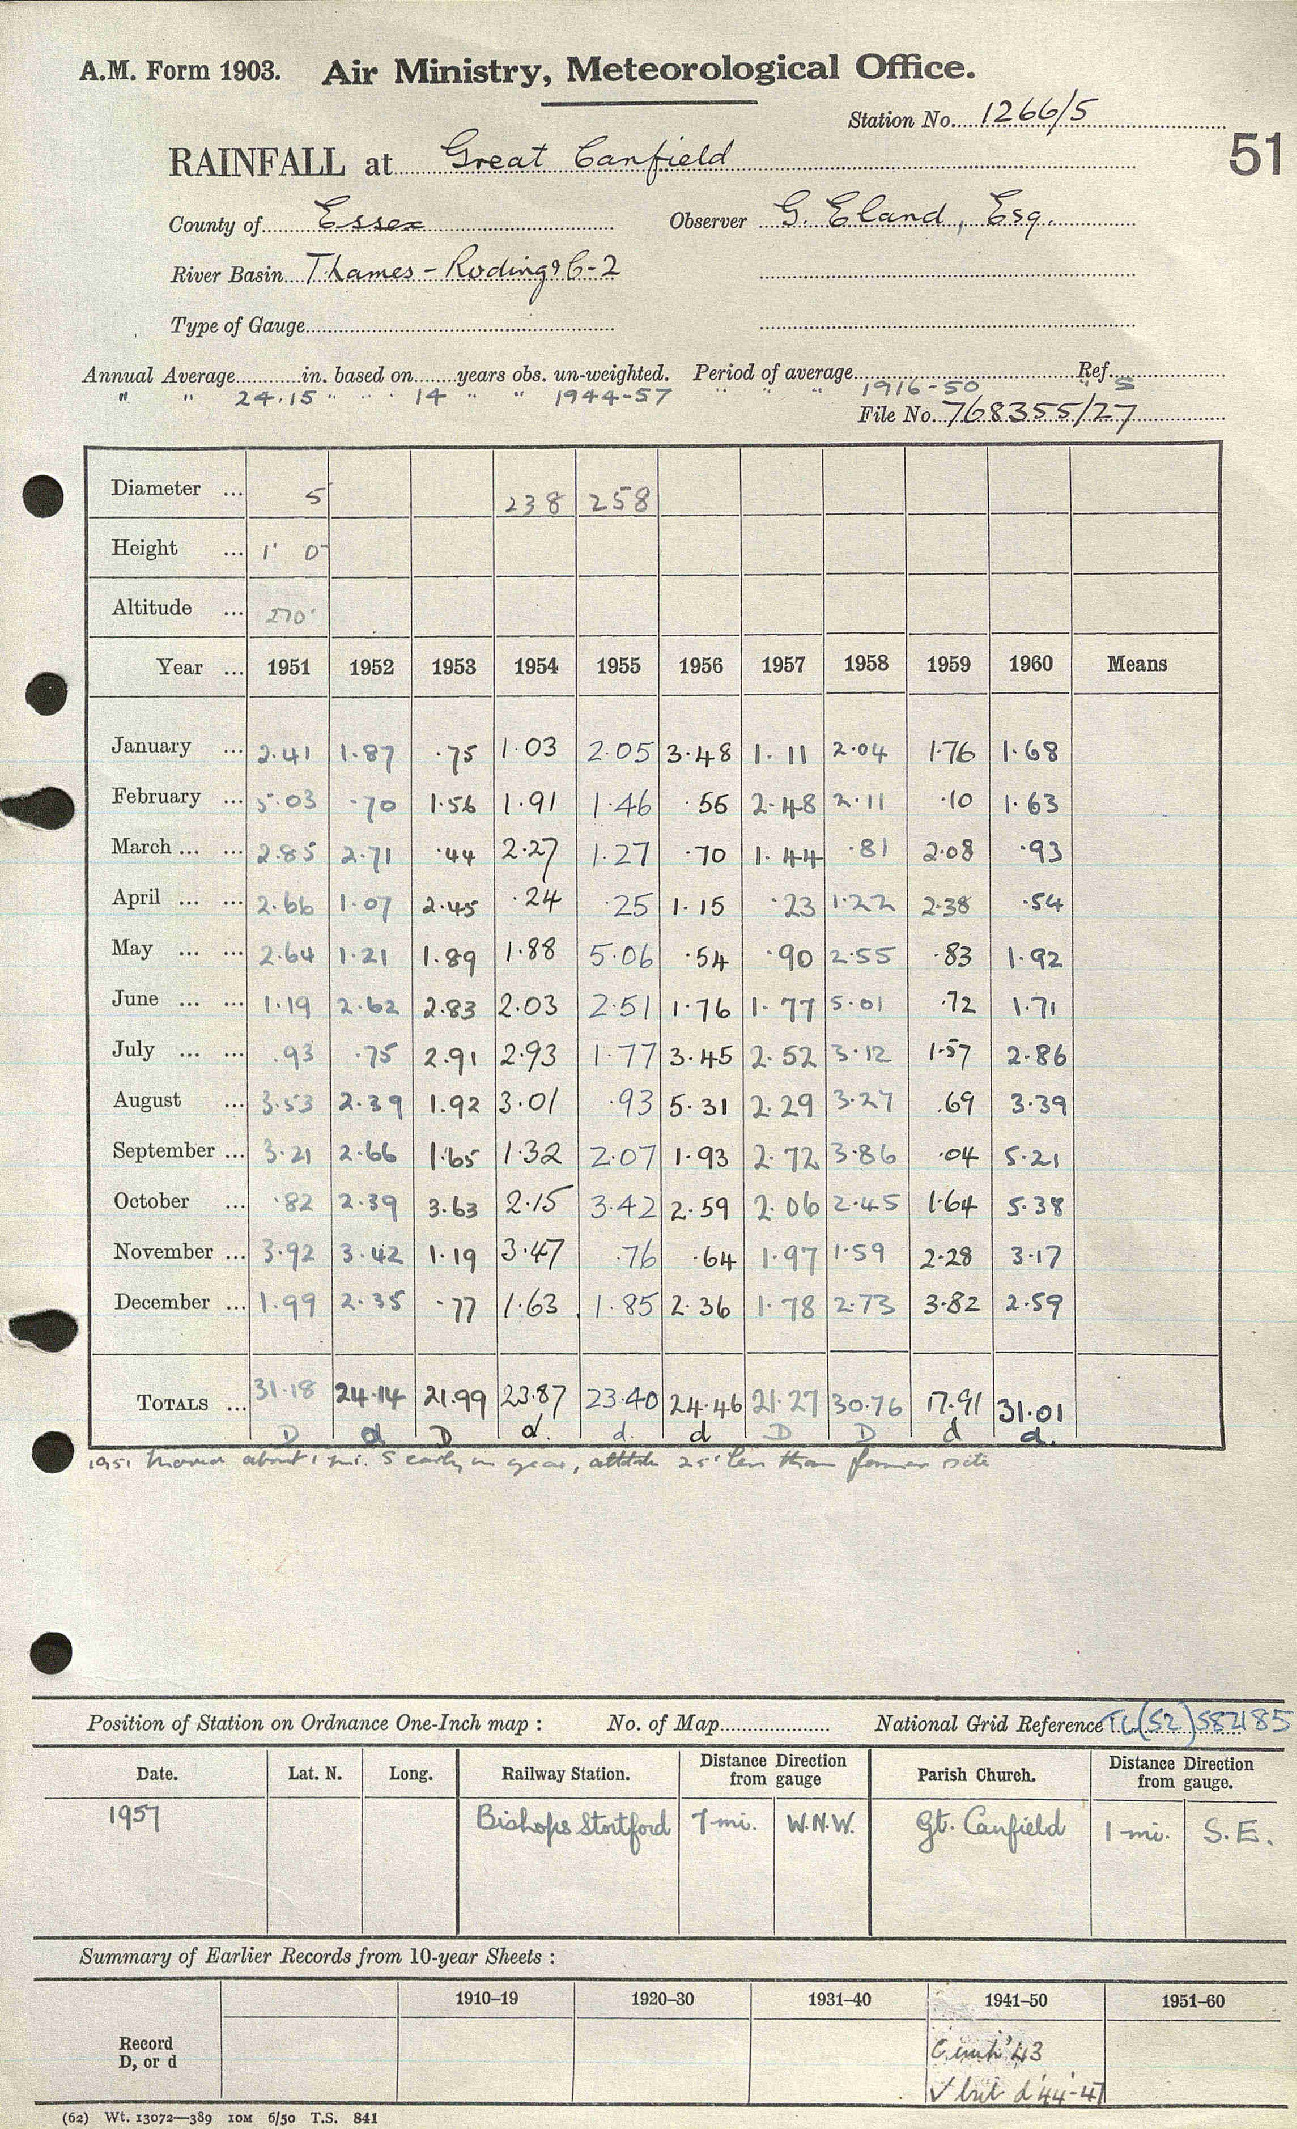 A.M. Form 1903. Air Ministry, Meteorological Office.
Station No. 1266/5
51
RAINFALL at Great Canfield
County of Essex Observer G. Eland, Esq.
River Basin Thames - Roding & 6-2
Type of Gauge
Annual Average in. based on years obs. un-weighted. Period of average Ref.
" " 24.15 " " 14 " " 1944-57 " " " 1916-50 " S
File No. 768355/27
Diameter ... 5 238 258
Height ... 1' 0"
Altitude ... 270'
Year ... 1951 1952 1953 1954 1955 1956 1957 1958 1959 1960 Means
January ... 2.41 1.87 .75 1.03 2.05 3.48 1.11 2.04 1.76 1.68
February ... 5.03 .70 1.56 1.91 1.46 .55 2.48 2.11 .10 1.63
March ... ... 2.85 2.71 .44 2.27 1.27 .70 1.44 .81 2.08 .93
April ... ... 2.66 1.07 2.45 .24 .25 1.15 .23 1.22 2.38 .54
May ... ... 2.64 1.21 1.89 1.88 5.06 .54 .90 2.55 .83 1.92
June ... ... 1.19 2.62 2.83 2.03 2.51 1.76 1.77 5.01 .72 1.71
July ... ... .93 .75 2.91 2.93 1.77 3.45 2.52 3.12 1.57 2.86
August ... 3.53 2.39 1.92 3.01 .93 5.31 2.29 3.27 .69 3.39
September ... 3.21 2.66 1.65 1.32 2.07 1.93 2.72 3.86 .04 5.21
October ... .82 2.39 3.63 2.15 3.42 2.59 2.06 2.45 1.64 5.38
November ... 3.92 3.42 1.19 3.47 .76 .64 1.97 1.59 2.28 3.17
December ... 1.99 2.35 .77 1.63 1.85 2.36 1.78 2.73 3.82 2.59
TOTALS ... 31.18 24.14 21.99 23.87 23.40 24.46 21.27 30.76 17.91 31.01
D d D d. d. d D D d d.
1951 Moved about 1 mi. S early in year, altitude 25' less than former site
Position of Station on Ordnance One-Inch map : No. of Map National Grid Reference TL(52)582185
Date. Lat. N. Long. Railway Station. Distance from gauge Direction Parish Church. Distance from gauge. Direction
1957 Bishops Stortford 7 mi. W.N.W. Gt. Canfield 1 mi. S.E.
Summary of Earlier Records from 10-year Sheets :
1910–19 1920–30 1931–40 1941–50 1951–60
Record
D, or d
'43
✓ but d '44-47
(62) Wt. 13072—389 10M 6/50 T.S. 841